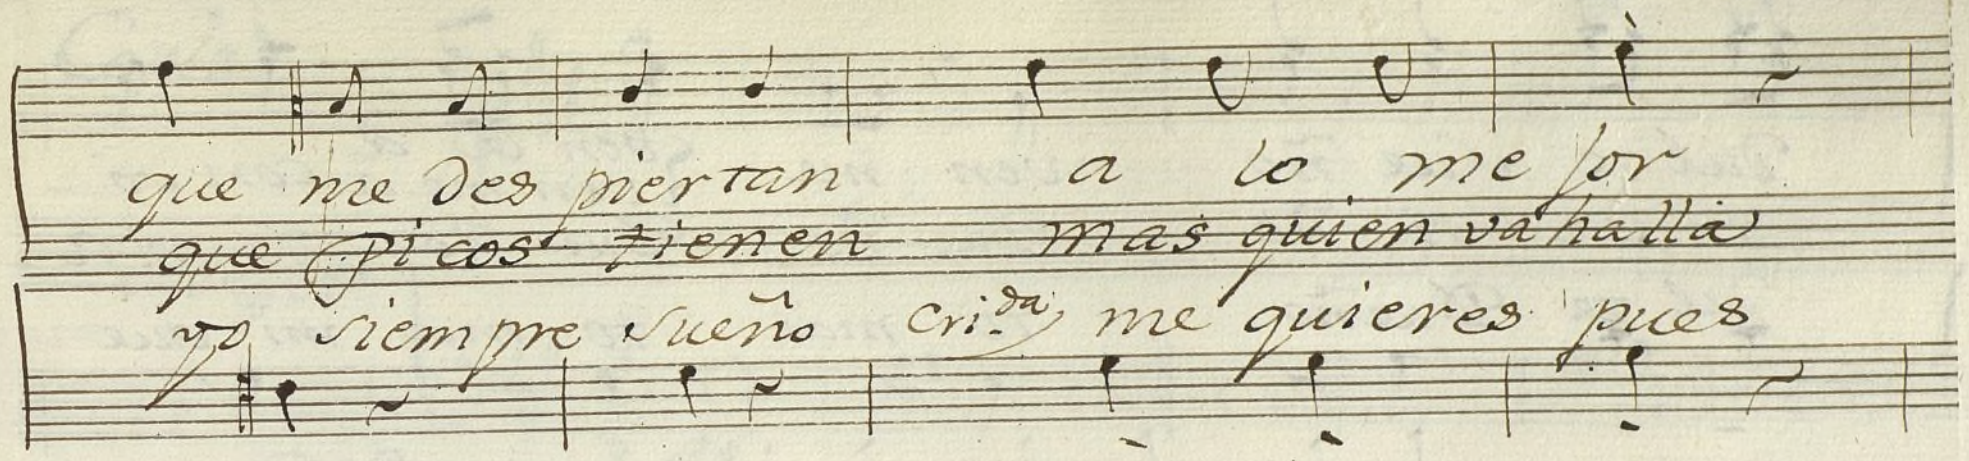 que me des piertan a lo me jor
que Picos tienen mas quien va halla
yo siempre sueño Cri.da me quieres pues